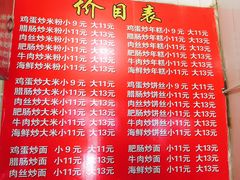 价目表
鸡蛋炒米粉小9元 大11元
腊肠炒米粉小11元 大13元
肉丝炒米粉小11元 大13元
肥肠炒米粉小11元 大13元
牛肉炒米粉小11元 大13元
海鲜炒米粉小11元 大13元
鸡蛋炒年糕小9元 大11元
腊肠炒年糕小11元 大13元
肉丝炒年糕小11元 大13元
肥肠炒年糕小11元 大13元
牛肉炒年糕小11元 大13元
海鲜炒年糕小11元 大13元
鸡蛋炒大米小9元 大11元
腊肠炒大米小11元 大13元
肉丝炒大米小11元 大13元
肥肠炒大米小11元 大13元
牛肉炒大米小11元 大13元
海鲜炒大米小11元 大13元
鸡蛋炒饼丝小9元 大11元
腊肠炒饼丝小11元 大13元
肉丝炒饼丝小11元 大13元
肥肠炒饼丝小11元 大13元
牛肉炒饼丝小11元 大13元
海鲜炒饼丝小11元 大13元
鸡蛋炒面 小9元 大11元
腊肠炒面 小11元 大13元
肉丝炒面 小11元 大13元
肥肠炒面 小11元 大13元
牛肉炒面 小11元 大13元
海鲜炒面 小11元 大13元